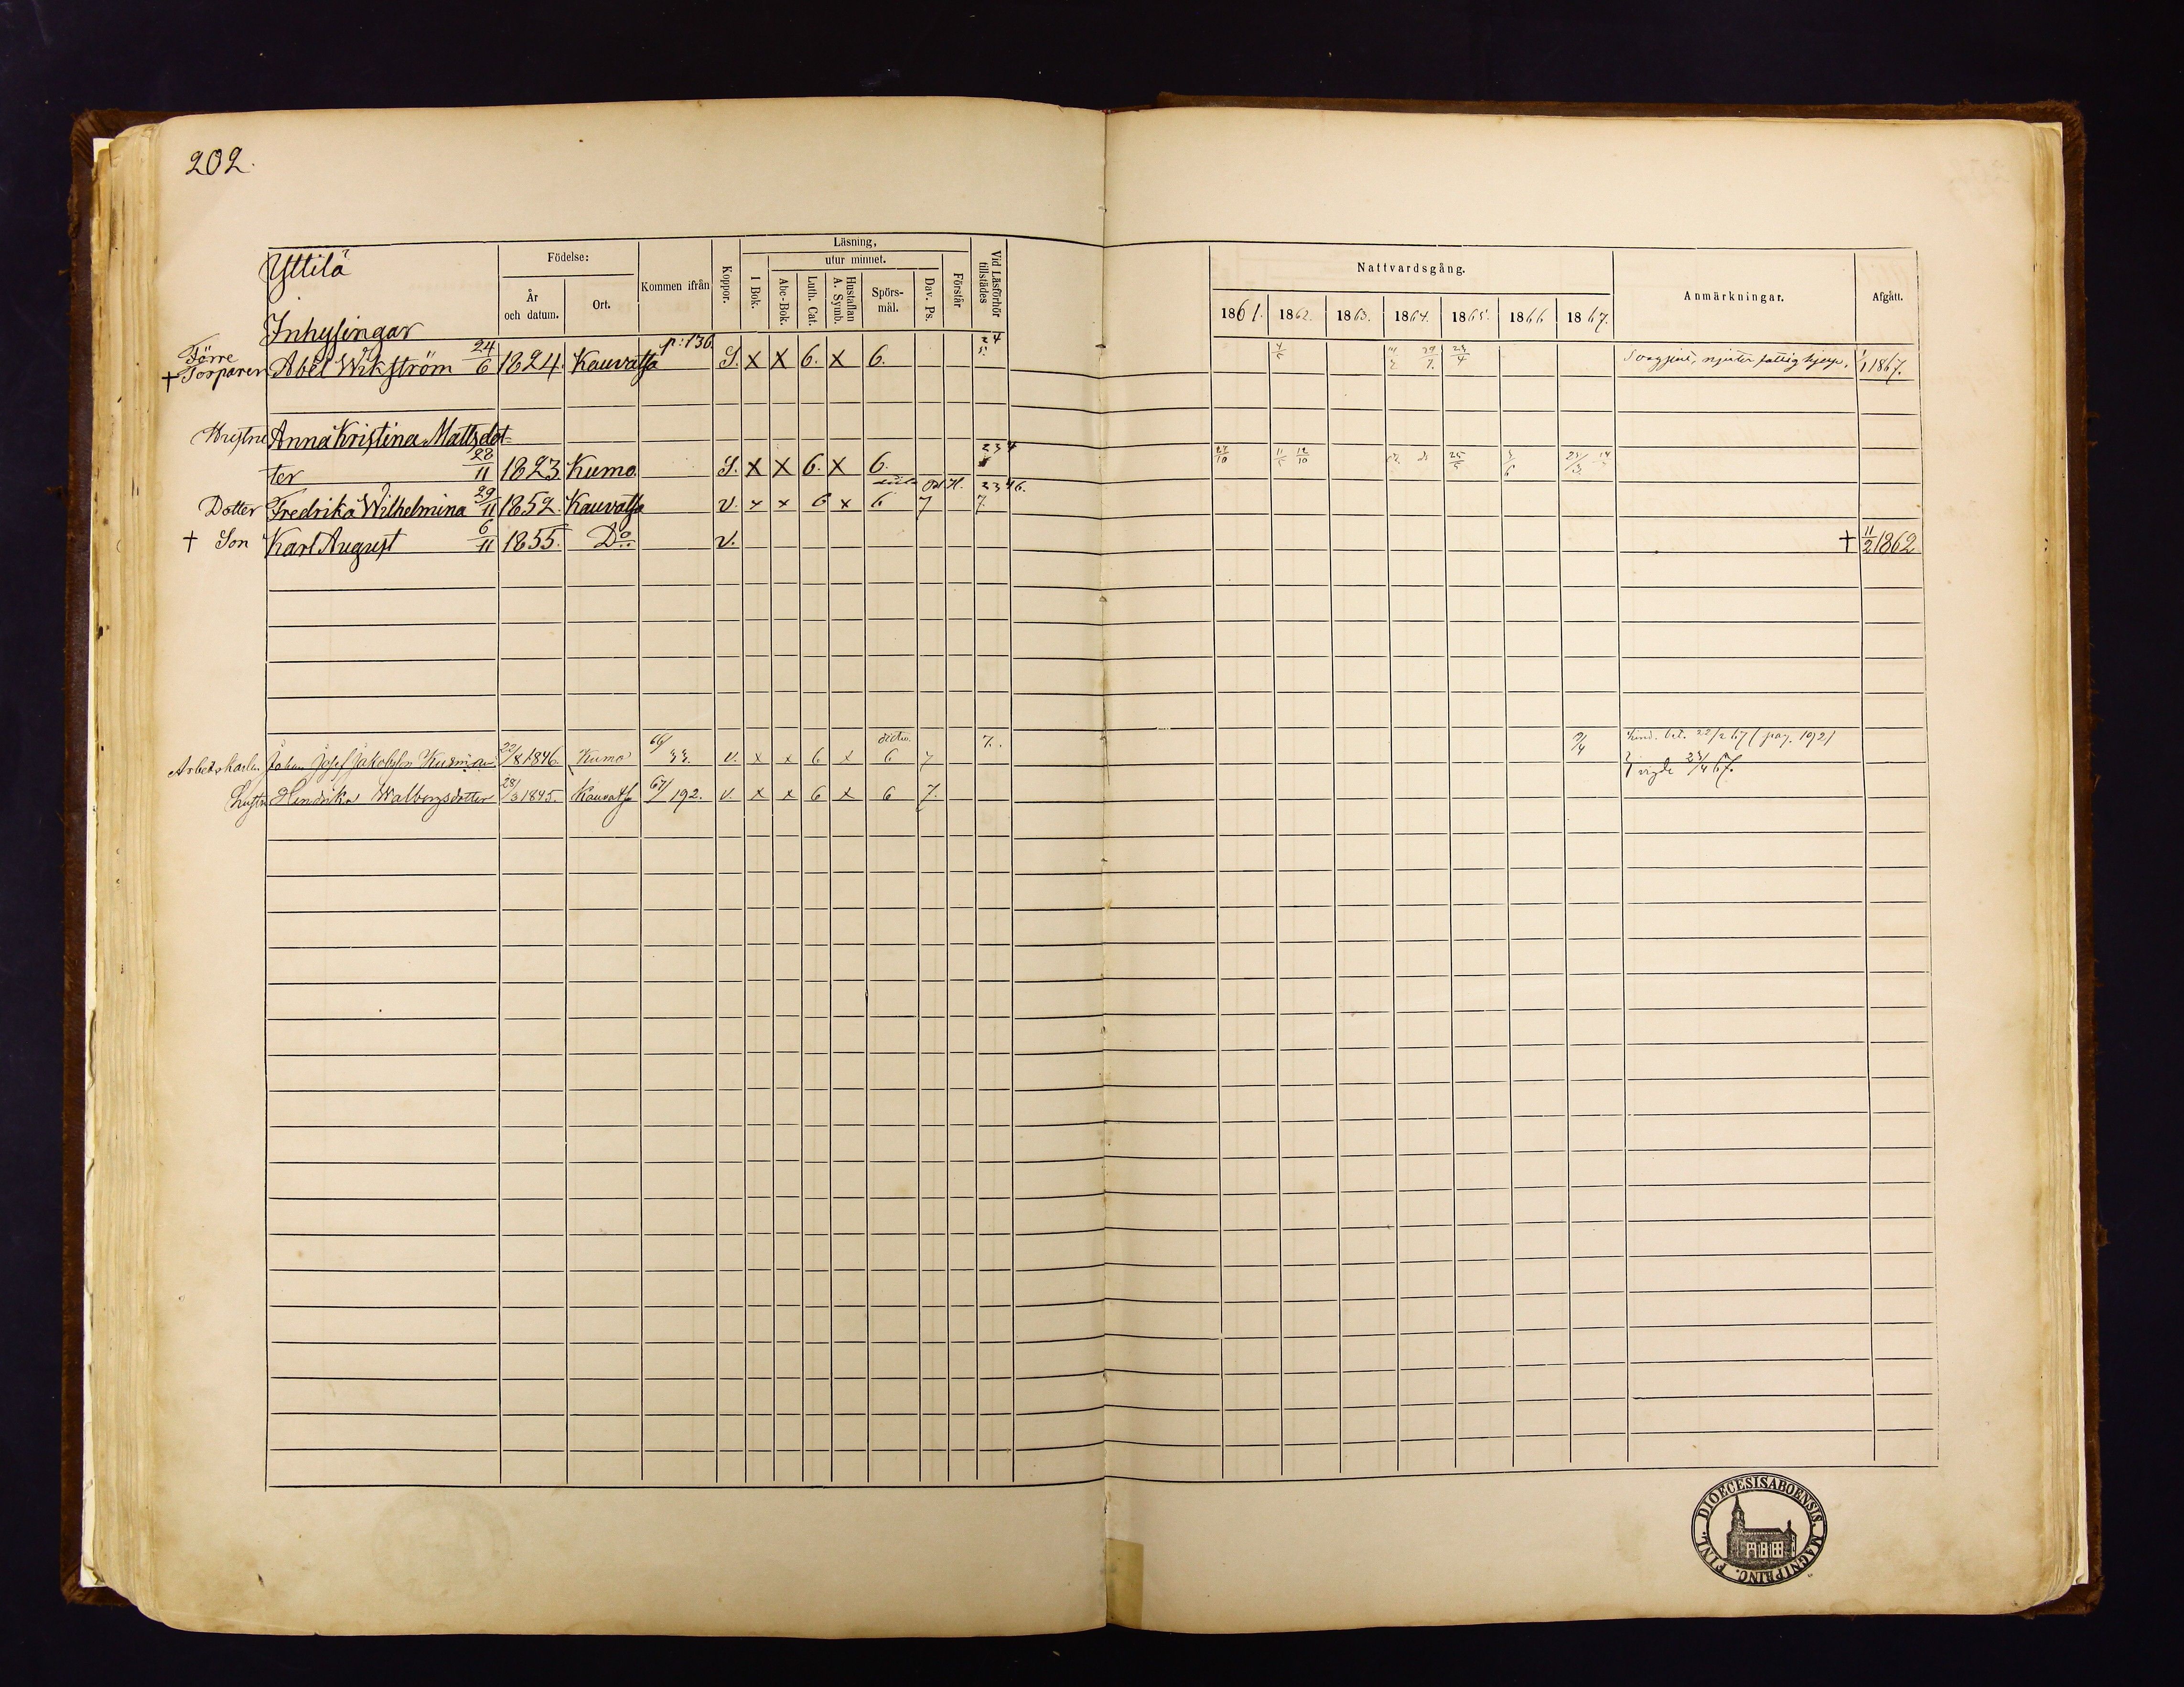 202.
Yttilä
Inhysingar
Födelse:
År och datum.
Ort.
Kommen ifrån
Koppor.
Läsning,
I Bok.
utur minnet.
Abc-Bok.
Luth. Cat.
Hustaflan A. Symb.
Spörs-mål.
Dav. Ps.
Förstår
Vid Läsförhör tillstädes
Nattvardsgång.
1861. 1862. 1863. 1864. 1865. 1866 1867.
Anmärkningar.
Afgått.
Förre
† Torparen Abel Wikström 24/6 1824. Kauvatsa p: 136 S. X X 6. X 6. 24 4/5 29/7. 23/4 njuter fattighjelp. 1/1 1867.
Hustru Anna Kristina Mattsdot-
ter 28/11 1823 Kumo S. X X 6. X 6. 234 27/10 11/5 12/10 25/5 3/6
Dotter Fredrika Wilhelmina 29/11 1852. Kauvatsa v. x x 6 x 6 7 2346. 7.
† Son Karl August 6/11 1855. Do v. † 11/2 1862
Arbetskarlen Johan Josef Jakobsson 22/8 1846. Kumo 66/ v. x x 6 x 6 7 7. 22/2 67 (pag. 192)
vigde 23/4 67.
Hustru Hendrika Walborgsdotter 28/3 1845. Kauvatsa 67/192. v. x x 6 x 6 7.
FINL. DIOECESIS ABOENSIS. MAGNI PRINC.